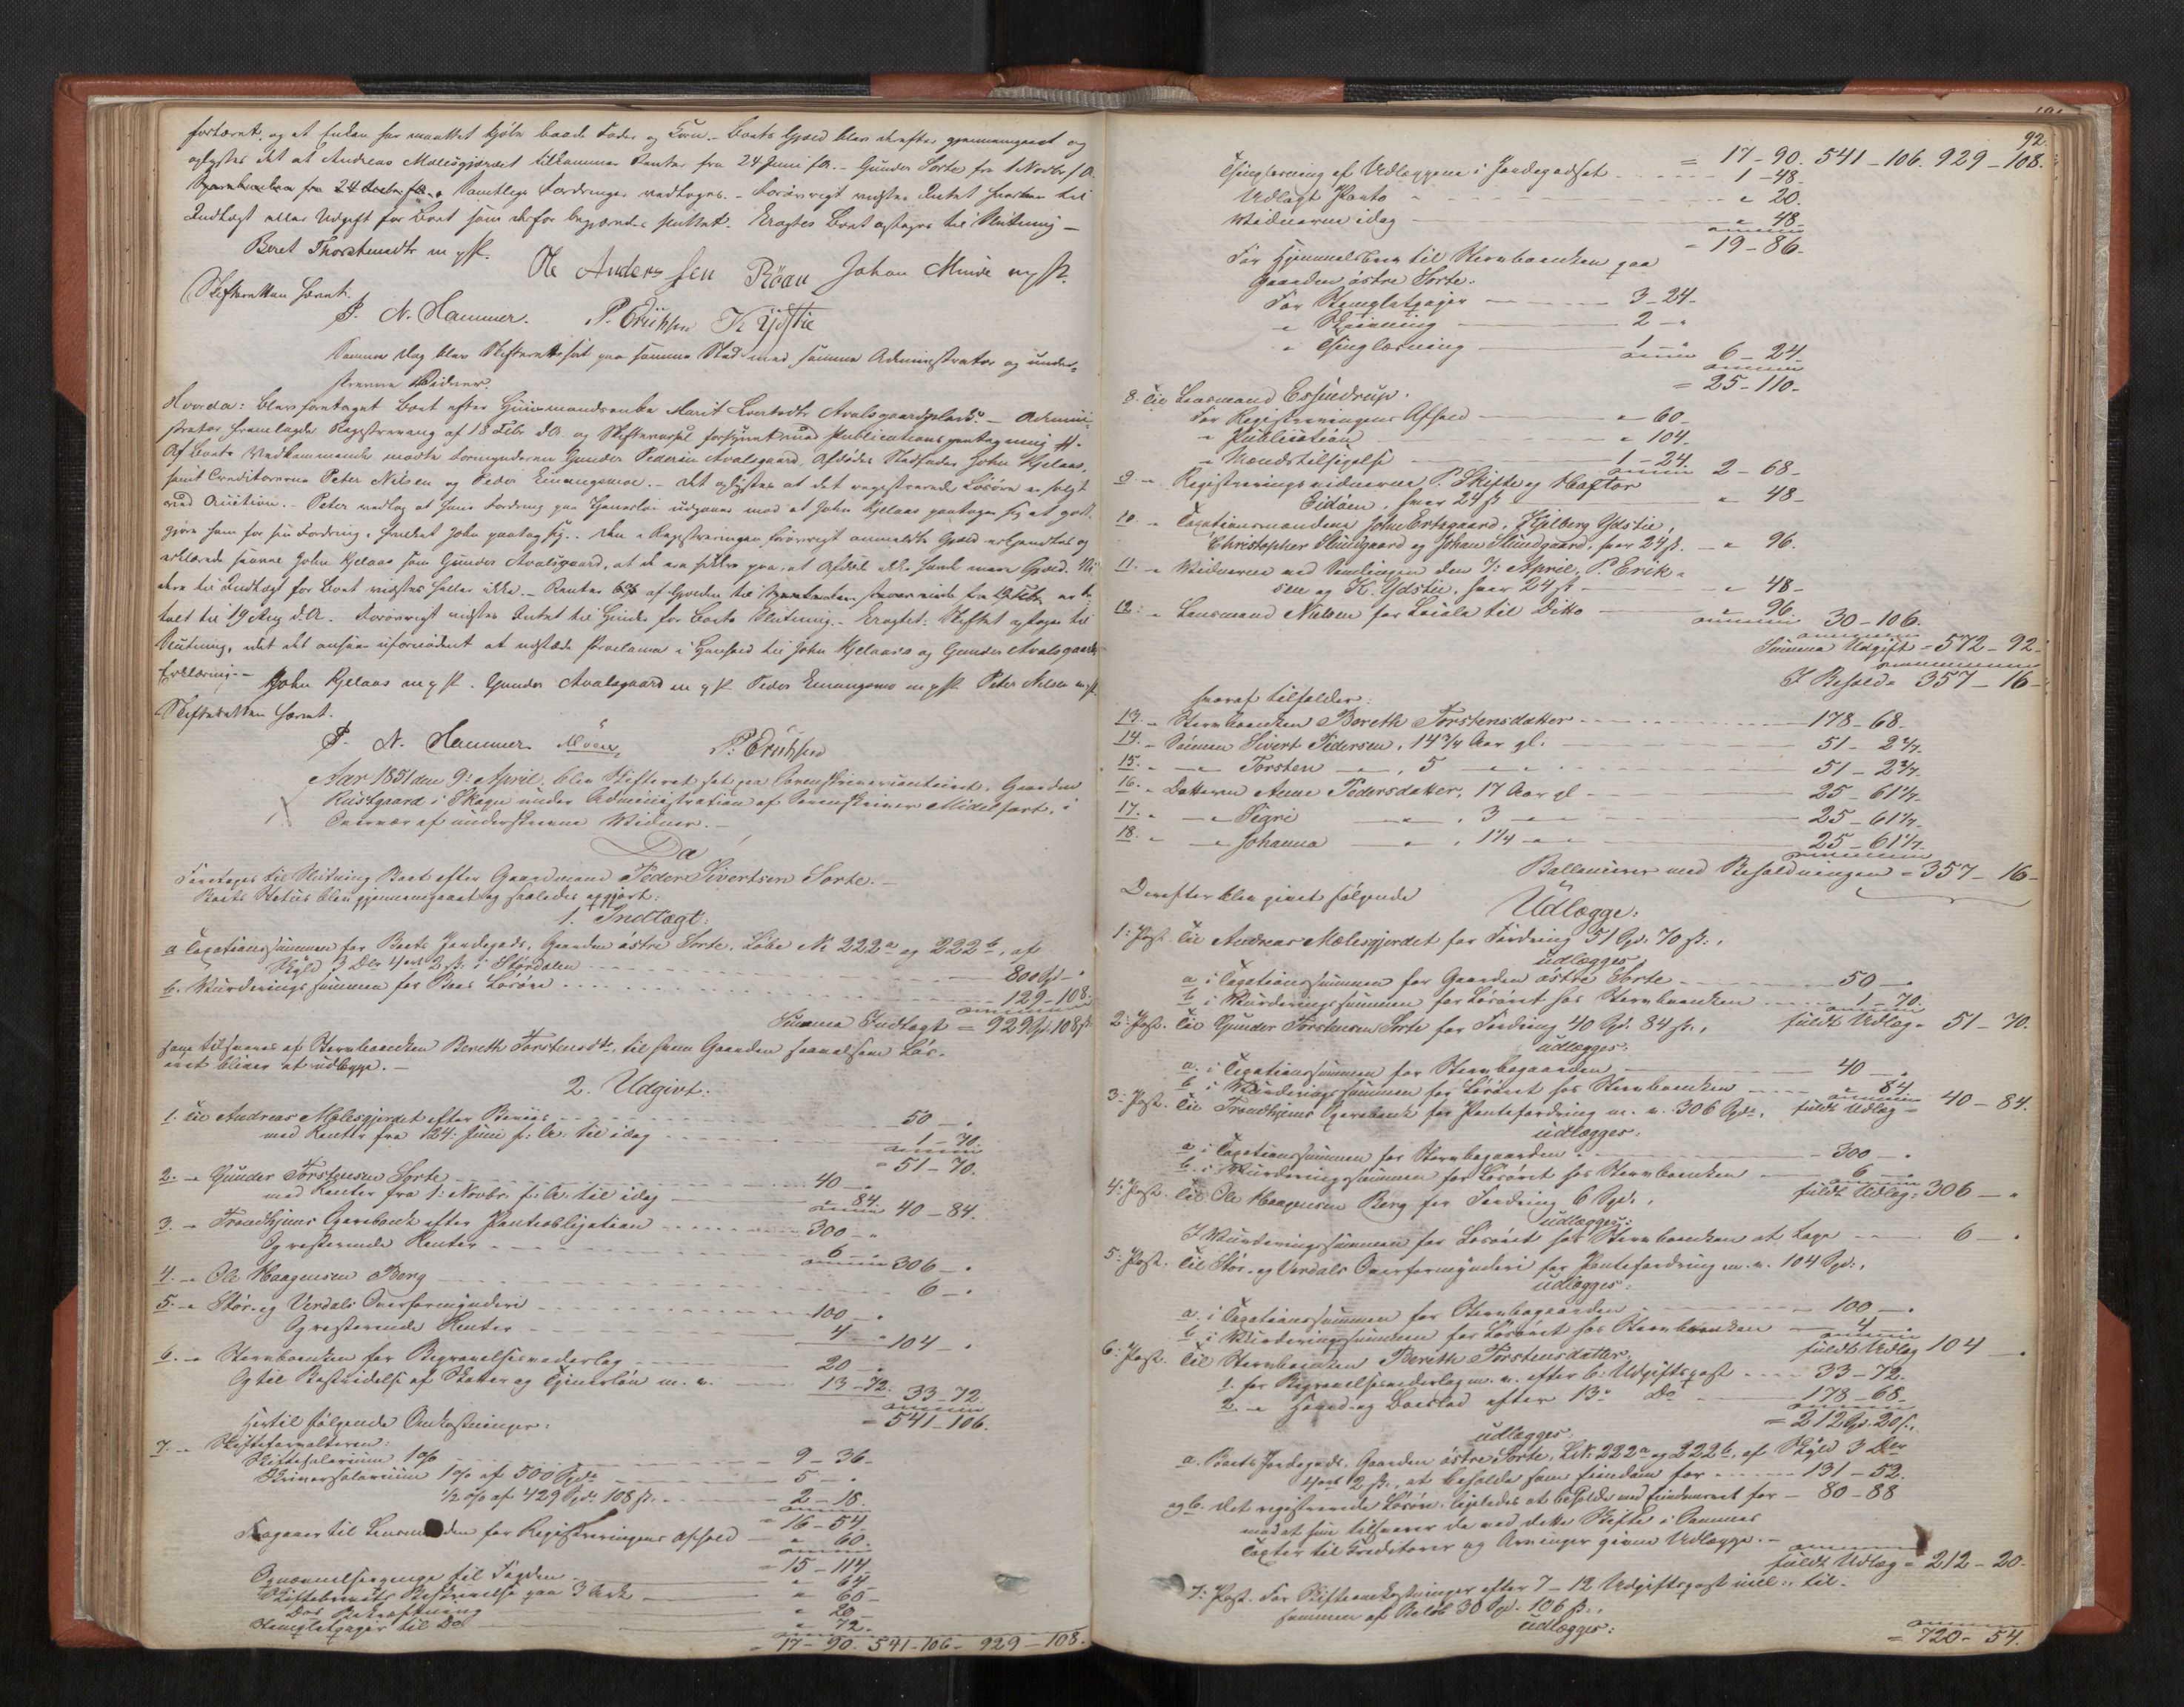 fortæret, og at Enken har maattet kjøbe baade Foder og Korn. - Boets Gjæld blev derefter gjennemgaaet og
oplystes det at Andreas Mælesgjærdet tilkommer Renter fra 24 Juni f.A. - Gunder Sorte fra 1 Novbr f.A.
Samtlige Fordringer vedtoges. - Forøvrigt vidstes Intet hverken til
Indtægt eller Udgift for Boet som derfor begjæredes sluttet. Eragtes Boet optages til Slutning -
Beret Thorstensdtr m.p.P. Ole Andersen Røan Johan Minde m.p.P.
Skifteretten hævet.
P. N. Hammer. P. Erichsen K Ydstie
Samme Dag blev Skifteret sat paa samme Sted med samme Administrator og under-
skrevne Vidner.
Hvorda: blev foretaget Boet efter Huusmandsenke Marit Avalsgaardplads. - Admini-
strator fremlagde Registrering af 18 Febr d.A. og Skifte forsynet med Publications paategning
Af Boets Vedkommende mødte Formynderen Gunder Pedersen Avalsgaard, Afdødes Stedfader John Kjelaas,
samt Creditorerne Peter Nilsen og Peder Emangsmoe. - Det oplystes at det registrerede Løsøre er solgt
ved Auction. - Peter vedtog at hans Fordring paa Tjenerløn udgaaer mod at John Kjelaas paatager sig at godt-
gjøre ham for sin Fordring, hvilket John paatog sig. Den i Registreringen forøvrigt anmeldte Gjæld erkjendtes og
erklærede saavel John Kjelaas som Gunder Avalsgaard, at de ere sikkre paa, at Afdøde ikke havde mere Gjæld.
dere til Indtægt for Boet vidstes heller ikke. - Renter af Gjælden til
talt til 19 Aug d.A. Forøvrigt vidstes Intet til Hinder for Boets Slutning. - Eragtet: Skiftet optages til
Slutning, idet det ansees ufornødent at udstæde Proclama i Henhold til John Kjelaas's og Gunder Avalsgaards
Erklæring. - John Kjelaas m.p.P. Gunder Avalsgaard m.p.P. Peder Emangsmo m.p.P. Peter Nilsen m.p.P.
Skifteretten hævet.
P. N. Hammer P. Erichsen
Aar 1851 den 9: April, blev Skifteret sat paa Sorenskrivercontoiret, Gaarden
Rustgaard i Skogn under Administration af Sorenskriver Middelfart, i
Overvær af underskrevne Vidner. -
Da
Foretoges til Slutning Boet efter Gaardmand Peder Sivertsen Sorte. -
Boets Status blev gjennemgaaet og saaledes opgjort:
1. Indtægt:
a Taxationssummen for Boets Jordegods, Gaarden østre Sorte, Løbe No 222a og 222b, af
Skyld 3 Dlr 4 ort 2 ß. i Størdalen 800 Spd -
b. Vurderingssummen for Boets Løsøre 129-108.
Summa Indtægt = 929 Spd 108 ß.
som tilsvares af Stervboenken Bereth Torstensdtr, til hvem Gaarden saavelsom Løs-
øret bliver at udlægge. -
2. Udgivt:
1. Til Andreas Mælesgjerdet efter Beviis 50 - "
med Renter fra 24: Juni f: A: til idag 1-70.
= 51-70.
2. - Gunder Torstensen Sorte 40 -
med Renter fra 1: Novbr. f: A: til idag " 84. 40-84.
3. - Trondhjems Sparebank efter Panteobligation 300 - "
Og resterende Renter 6 - " 306 - "
4. - Ole Haagensen Berg 6 - "
5. - Stør- og Verdals Overformynderi 100 - "
Og resterende Renter 4 " 104 - "
6. - Stervboenken for Begravelsesvederlag 20 - "
Og til Bestridelse af Skatter og Tjenerløn m. v. 13-72. 33-72.
= 541-106.
Hertil følgende Omkostninger:
7. - Skifteforvalteren:
Skiftesalarium 1% 9-36.
Skriversalarium 1% af 500 Spdr 5 - "
1/2 % af 429 Spd: 108 ß. 2-18.
= 16-54.
Fragaaer til Lensmanden for Registreringens Afhold " 60.
= 15-114.
Opnævnelsespenge til Fogden " 64-
Skiftebrevets Beskrivelse paa 3 Ark " 60-
Dets Bekræftning " 20-
Stempletpapir til Do " 72.
= 17-90. 541-106- 929-108.
92.
= 17-90. 541-106. 929-108.
Tinglæsning af Udlæggene i Jordegodset 1-48.
Udlagt Porto " 20.
Vidnerne idag " 48.
= 19-86.
For Hjemmelsbrev til Stervboenken paa
Gaarden østre Sorte:
For Stempletpapir 3-24.
" Skrivning 2 - "
" Tinglæsning 1 - " 6-24.
= 25-110.
8. Til Lensmand Essendrup:
For Registreringens Afhold " 60-
" Publication " 104-
" Mændstilsigelse 1-24. 2-68-
9 - Registreringsvidnerne P. Skifte og Haftor
Eidøen, hver 24 ß " 48-
10. - Taxationsmændene John Ertsgaard, Hjelberg Ydstie,
Christopher Slundgaard og Johan Slundgaard, hver 24 ß. - " 96.
11. - Vidnerne ved Samlingen den 7: April, P. Erik-
sen og K. Ydstie, hver 24 ß " 48-
12: - Lensmand Nielsen for Locale til Ditto " 96. 30-106.
Summa Udgift = 572-92.
I Behold = 357-16-
hvoraf tilfalder:
13. - Stervboenken Bereth Torstensdatter 178-68.
14. - Sønnen Sivert Pedersen, 14 3/4 Aar gl. 51-2 2/7.
15. - " Torsten " , 5 " " 51-2 2/7.
16. - Datteren Anne Pedersdatter, 17 Aar gl 25-61 1/7.
17. " - " Sigri " , 3 " " 25-61 1/7.
18. " - " Johanna " , 1 1/4 " 25-61 1/7.
Ballancerer med Beholdningen = 357-16-
Derefter blev givet følgende Udlægge:
1: Post. Til Andreas Mælesgjerdet for Fordring 51 Spd: 70 ß:,
udlægges
a. i Taxationssummen for Gaarden østre Sorte 50 - "
b. i Vurderingssummen for Løsøret hos Stervboenken 1-70.
fuldt Udlæg = 51-70.
2: Post. Til Gunder Torstensen Sorte for Fordring 40 Spd: 84 ß.,
udlægges:
a. i Taxationssummen for Stervbogaarden 40 - "
b. i Vurderingssummen for Løsøret hos Stervboenken " 84.
fuldt Udlæg = 40-84.
3: Post. Til Trondhjems Sparebank for Pantefordring m. v. 306 Spdr,
udlægges,
a. i Taxationssummen for Stervbogaarden 300 - "
b. i Vurderingssummen for Løsøret hos Stervboenken 6 - "
fuldt Udlæg = 306 - "
4: Post. Til Ole Haagensen Berg for Fordring 6 Spd:,
udlægges:
I Vurderingssummen for Løsøret hos Stervboenken at tage 6 - "
5: Post. Til Stør- og Verdals Overformynderi for Pantefordring m. v. 104 Spd:,
udlægges:
a. i Taxationssummen for Stervbogaarden 100 - "
b. i Vurderingssummen for Løsøret hos Stervboenken 4 - "
fuldt Udlæg 104 - "
6: Post. Til Stervboenken Bereth Torstensdatter,
1. for Begravelsesvederlag m. v. efter 6: Udgiftspost 33-72.
2. - Hoved- og Boeslod efter 13: Do 178-68-
= 212 Spd. 20 ß.,
udlægges:
a. Boets Jordegods, Gaarden østre Sorte, L.N: 222a og 222b, af Skyld 3 Dlr
4 ort 2 ß., at beholde som Eiendom for 131-52.
og b. det registrerede Løsøre, ligeledes at beholde med Eiendomsret for - 80-88
mod at hun tilsvarer de ved dette Skifte i sammes
Taxter til Creditorer og Arvinger givne Udlægge. -
fuldt Udlæg = 212-20-
7: Post. For Skifteomkostninger efter 7-12 Udgiftspost incl: til-
sammen af Beløb 30 Spd. 106 ß.,
udlægges:
= 720-54.